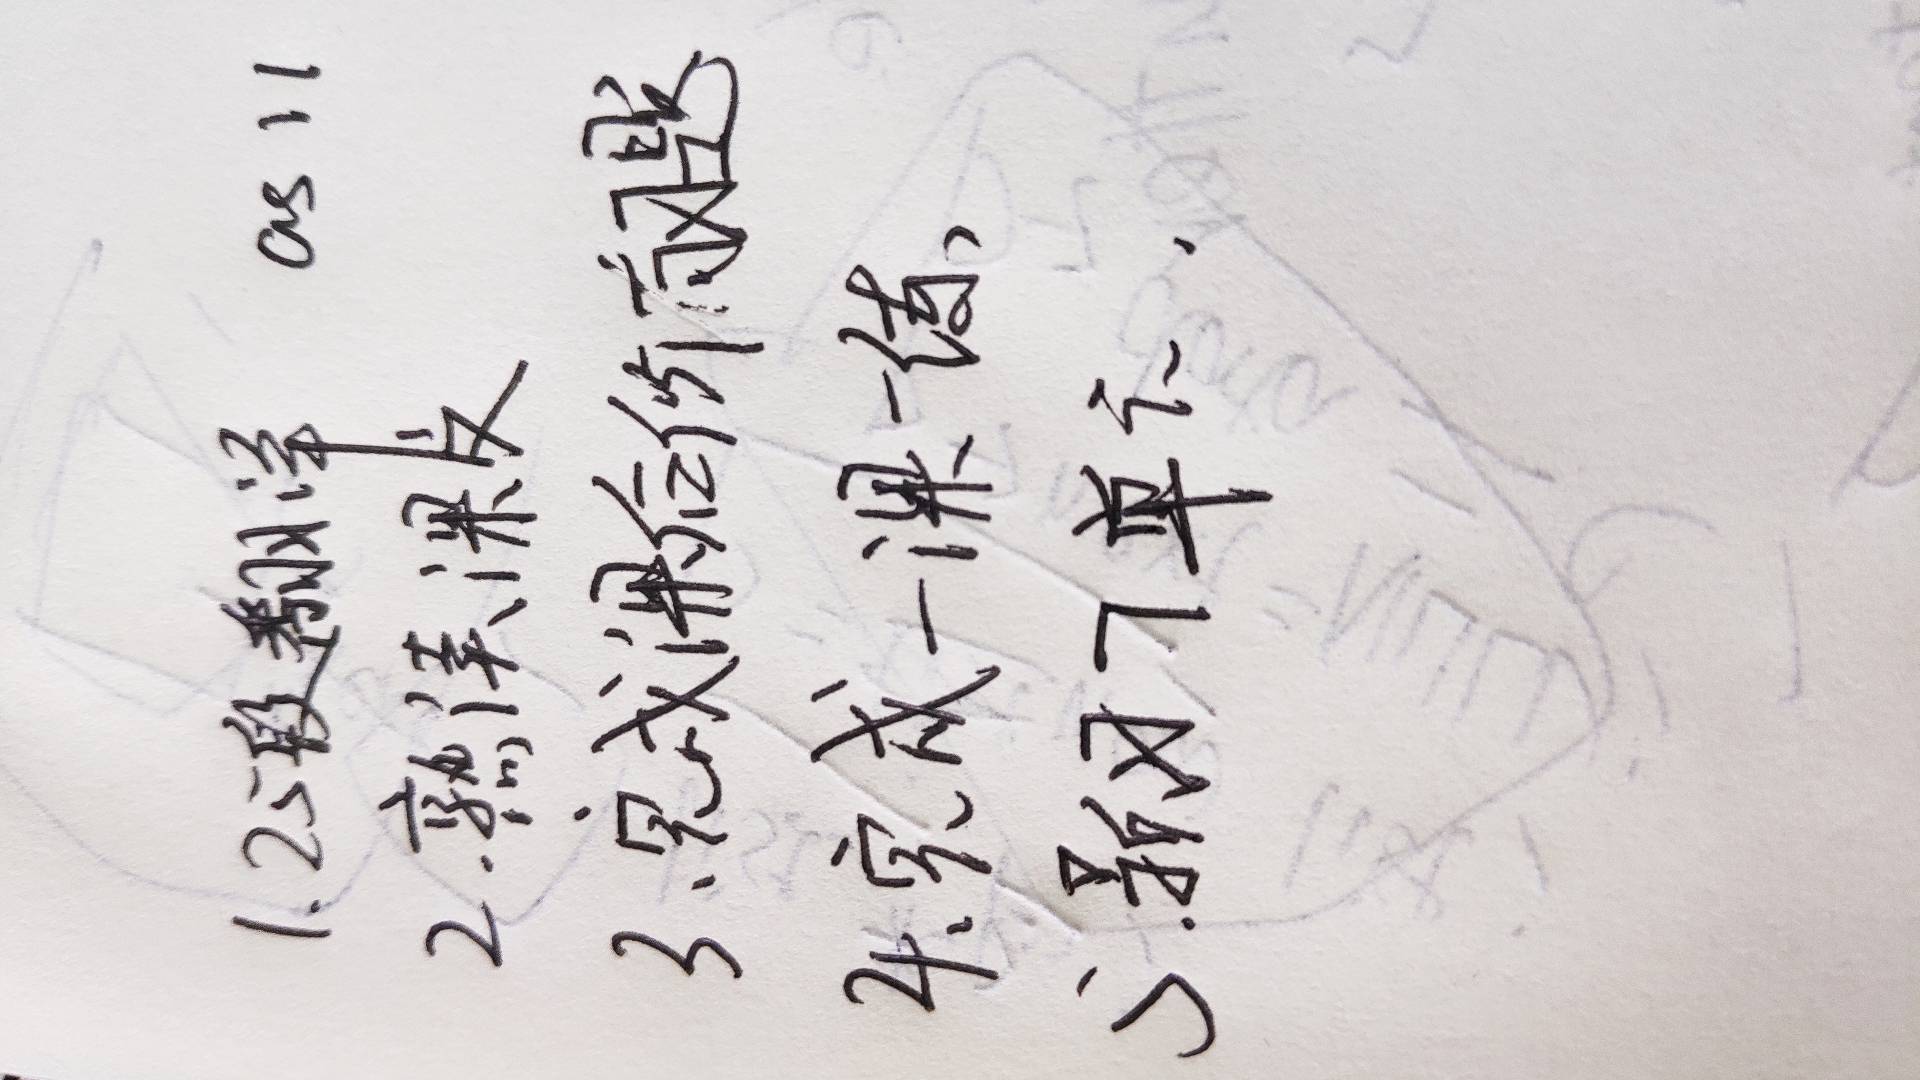 1.25段翻译 as 11
2.熟读课文
3.完成课后所有习题
4.完成一课一练
5.预习7单元.